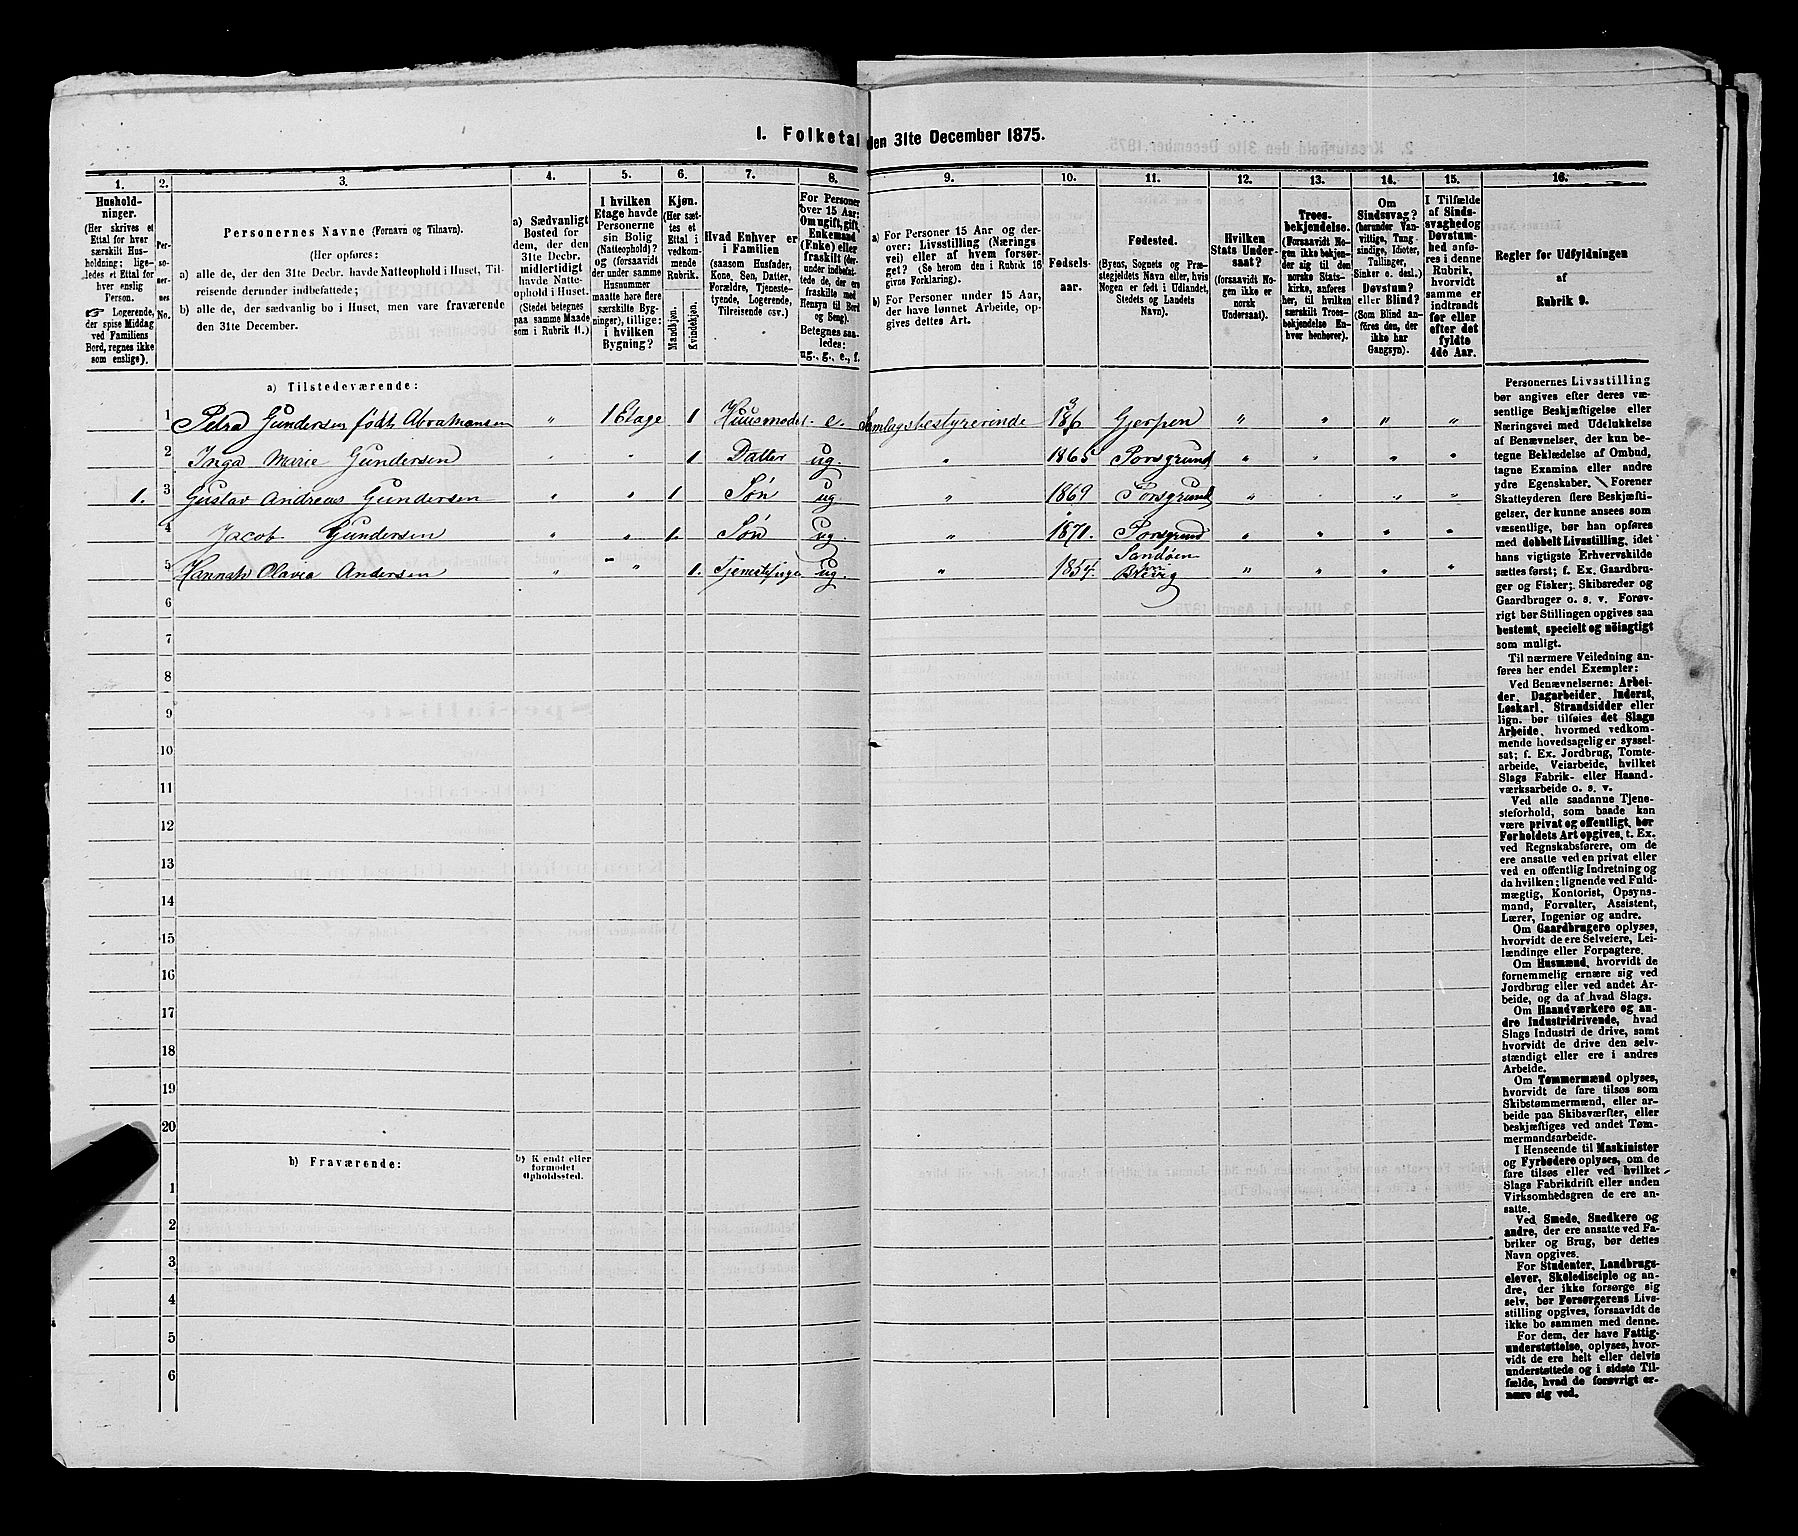 1. Folketal den 31te December 1875.
1. 2. 3. 4. 5. 6. 7. 8. 9. 10. 11. 12. 13. 14. 15. 16.
Hushold-
ninger.
(Her skrives et
Ettal for hver
særskilt Hus-
holdning; lige-
ledes et Ettal for
hver enslig
Person.
☞ Logerende,
der spise Middag
ved Familiens
Bord, regnes ikke
som enslige).
Per-
so-
ner-
nes
No.
Personernes Navne (Fornavn og Tilnavn).
(Her opføres:
a) alle de, der den 31te Decbr. havde Natteophold i Huset, Til-
reisende derunder indbefattede;
b) alle de, der sædvanlig bo i Huset, men vare fraværende
den 31te December.
a) Sædvanligt
Bosted for
dem, der den
31te Decbr.
midlertidigt
havde Natte-
ophold i Huset.
(Stedet betegnes
paa samme Maade
som i Rubrik 11.)
I hvilken
Etage havde
Personerne
sin Bolig
(Natteophold)?
og (forsaavidt
der under samme
Husnummer
maatte høre flere
særskilte Byg-
ninger), tillige:
i hvilken
Bygning?
Kjøn.
(Her sæt-
tes et
Ettal i
vedkom-
mende
Rubrik.
Mandkjøn.
Kvindekjøn.
Hvad Enhver er
i Familien
(saasom Husfader,
Kone, Søn, Datter,
Forældre, Tjeneste-
tyende, Logerende,
Tilreisende osv.)
For Personer
over 15 Aar:
Om ugift, gift,
Enkemand
(Enke) eller
fraskilt (der-
under indbefat-
tede de, der ere
fraskilte med
Hensyn til Bord
og Seng).
Betegnes saa-
ledes:
ug., g., e., f.
a) For Personer 15 Aar og der-
over: Livsstilling (Nærings
vei) eller af hvem forsør-
get? (Se herom den i Rubrik 16
givne Forklaring).
b) For Personer under 15 Aar,
der have lønnet Arbeide, op-
gives dettes Art.
Fødsels-
aar.
Fødested.
(Byens, Sognets og Præ-
stegjeldets Navn eller, hvis
Nogen er født i Udlandet,
Stedets og Landets
Navn).
Hvilken
Stats Under-
saat?
(forsaavidt No-
gen ikke er
norsk
Undersaat).
Troes-
bekjendelse.
(Forsaavidt No-
gen ikke bekjen-
der sig til den
norske Stats-
kirke, anføres
her, til hvilken
særskilt Troes-
bekjendelse En-
hver henhører).
Om
Sindssvag?
(herunder Van-
vittige, Tung-
sindige, Idioter,
Tullinger,
Sinker o. desl.)
Døvstum?
eller Blind?
(Som Blind an-
føres den, der
ikke har
Gangsyn).
I Tilfælde
af Sinds-
svaghed og
Døvstum-
hed anfø-
res i denne
Rubrik,
hvorvidt
samme er
indtraadt
før eller
efter det
fyldte
4de Aar.
Regler for Udfyldningen
af
Rubrik 9.
a) Tilstedeværende:
1 Petra Gundersen født Abrahamsen " 1 Etage 1 Huusmoder e. Samlagsbestyrerinde Gjerpen " " " "
2 Inga Marie Gundersen " " 1 Datter ug. " 1865 Porsgrund " " " "
1. 3 Gustav Andreas Gundersen " " 1 Søn ug " 1869 Porsgrund " " " "
4 Jacob Gundersen " " 1. Søn ug. " 1871. Porsgrund " " " "
5 Hannah Olavia Andersen " " 1. Tjenestepige ug. " 1854. Sandøen Brevig " " " "
6
7
8
9
10
11
12
13
14
15
16
17
18
19
20
b) Fraværende:
b) Kendt eller
formodet
Opholdssted.
1
2
3
4
5
6
Personernes Livsstilling
bør angives efter deres væ-
sentlige Beskjæftigelse eller
Næringsvei med Udelukkelse
af Benævnelser, der kun be-
tegne Beklædelse af Ombud,
tagne Examina eller andre
ydre Egenskaber. Forener
Skatteyderen flere Beskjæfti-
gelser, der kunne ansees som
væsentlige, bør han opføres
med dobbelt Livsstilling, idet
hans vigtigste Erhvervskilde
sættes først; f. Ex. Gaardbru-
ger og Fisker; Skibsreder og
Gaardbruger o. s. v. Forøv-
rigt bør Stillingen opgives saa
bestemt, specielt og nöiagtigt
som muligt.
Til nærmere Veiledning an-
føres her endel Exempler:
Ved Benævnelserne: Arbei-
der, Dagarbeider, Inderst,
Løskarl, Strandsidder eller
lign. bør tilføies det Slags
Arbeide, hvormed vedkom-
mende hovedsagelig er syssel-
sat; f. Ex. Jordbrug, Tomte-
arbeide, Veiarbeide, hvilket
Slags Fabrik- eller Haand-
værksarbeide o. s. v.
Ved alle saadanne Tjene-
steforhold, som baade kan
være privat og offentligt, bør
Forholdets Art opgives, t. Ex.
ved Regnskabsførere, om de
ere ansatte ved en privat eller
ved en offentlig Indretning og
da hvilken; lignende ved Fuld-
mægtig, Kontorist, Opsyns-
mand, Forvalter, Assistent,
Lærer, Ingeniør og andre.
Om Gaardbrugere oplyses,
hvorvidt de ere Selveiere, Lei-
lændinge eller Forpagtere.
Om Husmænd, hvorvidt de
fornemmelig ernære sig ved
Jordbrug eller ved andet Ar-
beide, og da af hvad Slags.
Om Haandværkere og an-
dre Industridrivende, hvad
Slags Industri de drive, samt
hvorvidt de drive den selv-
stændigt eller ere i andres
Arbeide.
Om Tømmermænd oplyses,
hvorvidt de fare tilsøs som
Skibstømmermænd, eller ar-
beide paa Skibsværfter, eller
beskjæftiges ved andet Tøm-
mermandsarbeide.
I Henseende til Maskinister
og Fyrbødere oplyses, om de
fare tilsøs eller ved hvilket
Slags Fabrikdrift eller anden
Virksomhedsgren de ere an-
satte.
Ved Smede, Snedkere og
andre, der ere ansatte ved Fa-
briker og Brug, bør dettes
Navn opgives.
For Studenter, Landbrugs-
elever, Skoledisciple og an-
dre, der ikke forsørge sig
selv, bør Forsørgerens Livs-
stilling opgives, forsaavidt de
ikke bo sammen med denne.
For dem, der have Fattig-
understøttelse, oplyses, hvor-
vidt de ere helt eller delvis
understøttede og i sidste Til-
fælde, hvad de forøvrigt er-
nære sig ved.